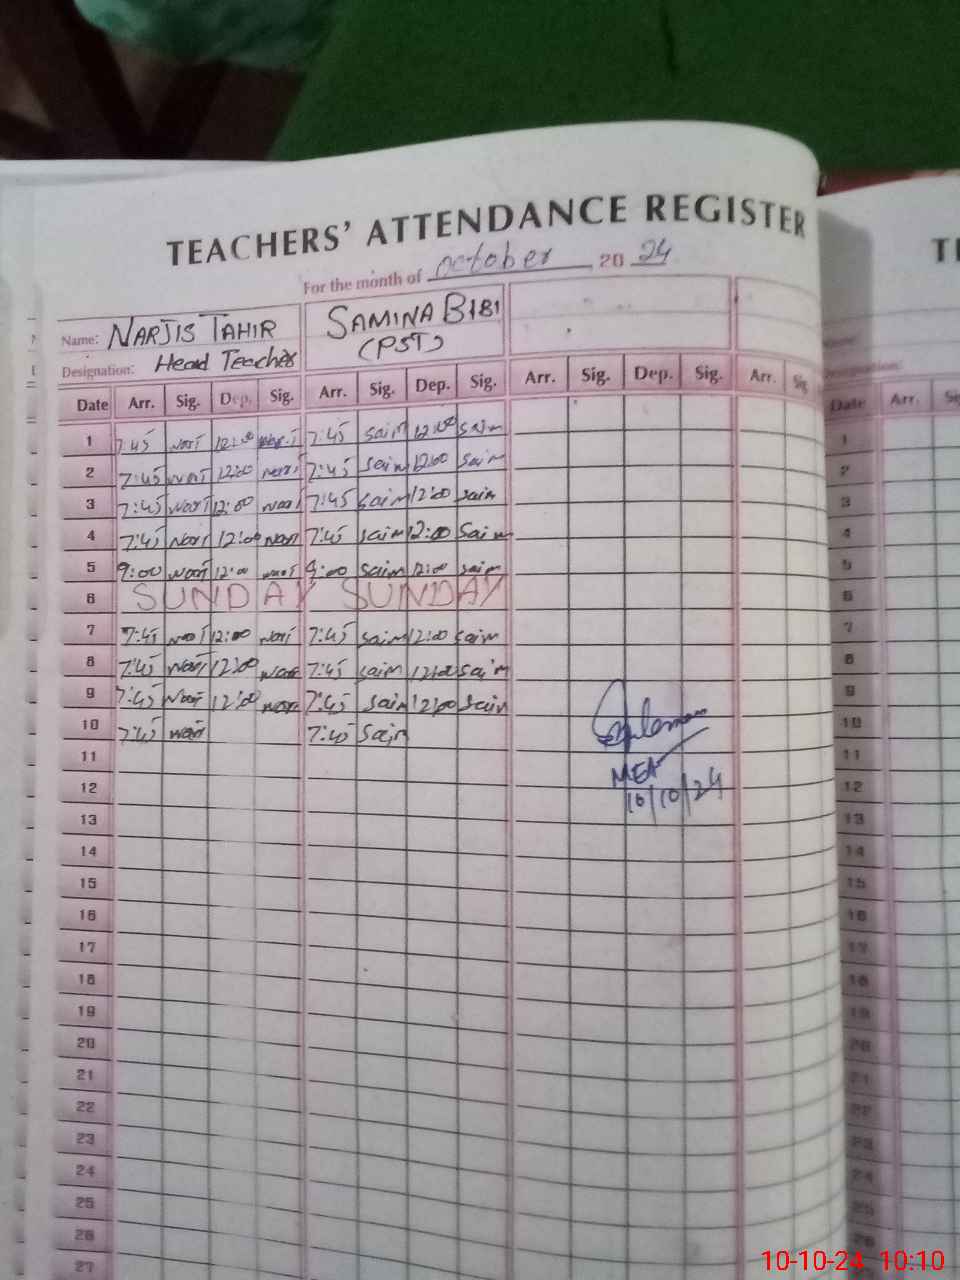 TEACHERS' ATTENDANCE REGISTER
For the month of October 2024
Name: NARJIS TAHIR SAMINA BIBI
Designation: Head Teacher (PST)
Date Arr. Sig. Dep. Sig. Arr. Sig. Dep. Sig. Arr. Sig. Dep. Sig. Arr. Sig
1 7:45 12:00 7:45 12:00
2 7:45 12:00 7:45 12:00
3 7:45 12:00 7:45 12:00
4 7:45 12:00 7:45 12:00
5 9:00 12:00 9:00 12:00
6 SUNDAY SUNDAY
7 7:45 12:00 7:45 12:00
8 7:45 12:00 7:45 12:00
9 7:45 12:00 7:45 12:00
10 7:45 7:45
11
12
13
14
15
16
17
18
19
20
21
22
23
24
25
26
27
MEA
10/10/24
Date Arr.
1
2
3
4
5
6
7
8
9
10
11
12
13
14
15
16
17
18
19
20
21
22
23
24
25
26
10-10-24 10:10